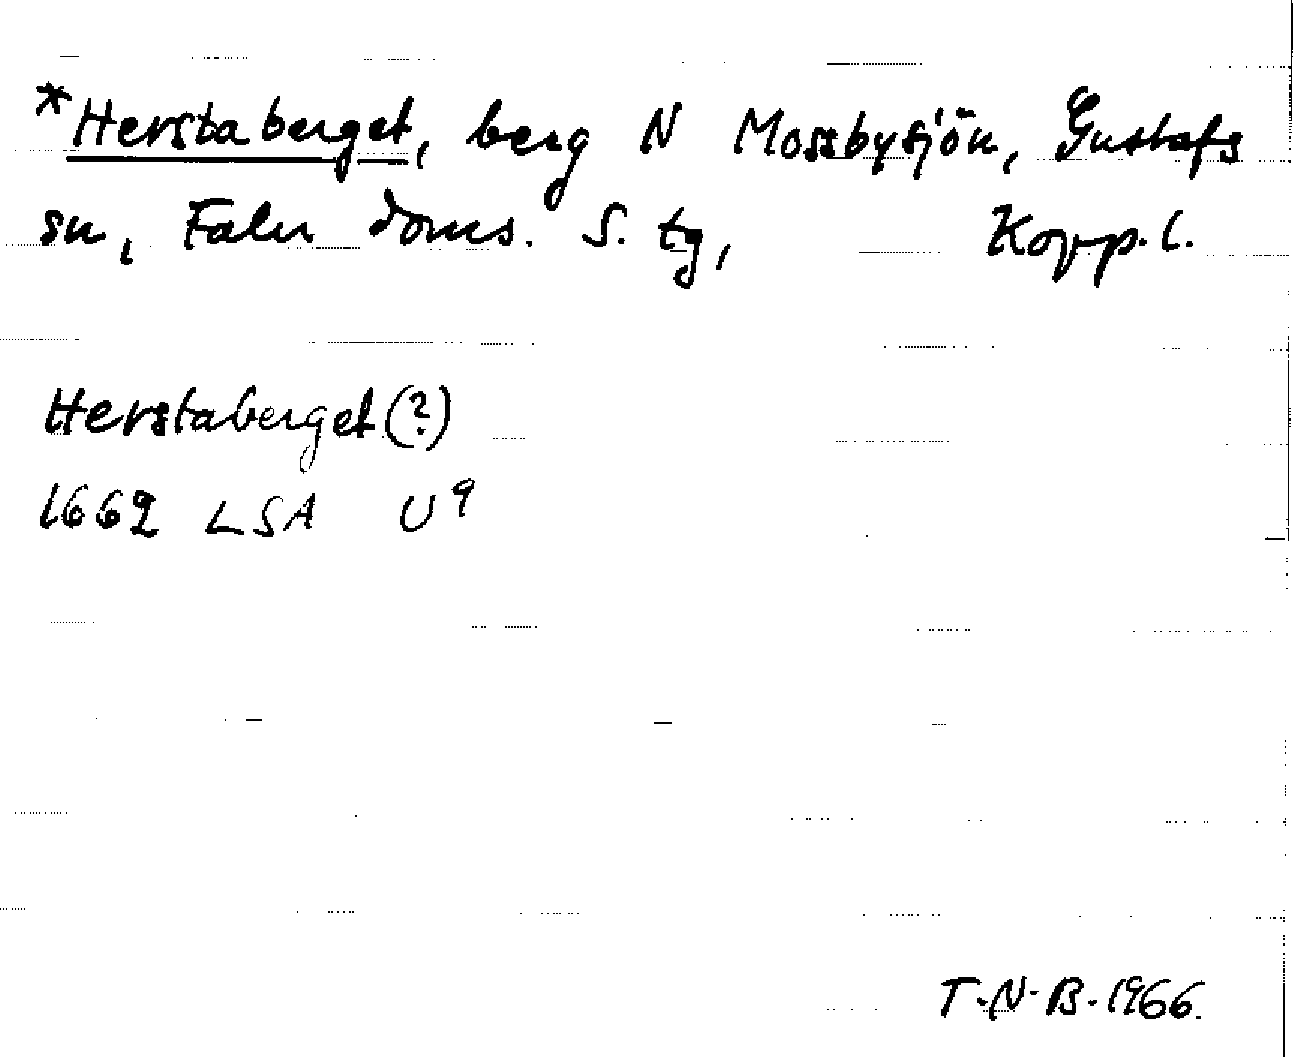 *Herstaberget, berg N Mossbysjön, Gustafs
sn, Falu doms. S. tg, Kopp. l.
Herstaberget (?)
1662 LSA U9
T.N.B. 1966.